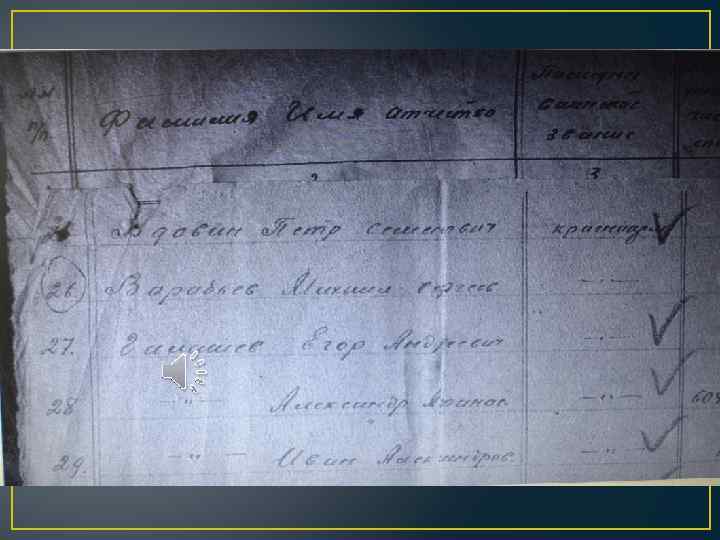 №№ п/п Фамилия Имя отчество воинское звание
2 3
Вдовин Петр Семенович красноарм
26. Варабьев Михаил Сергеев —〃—
27. Егор Андреевич —〃—
28 —〃— Александр —〃—
29. —〃— Иван Александров. —〃—